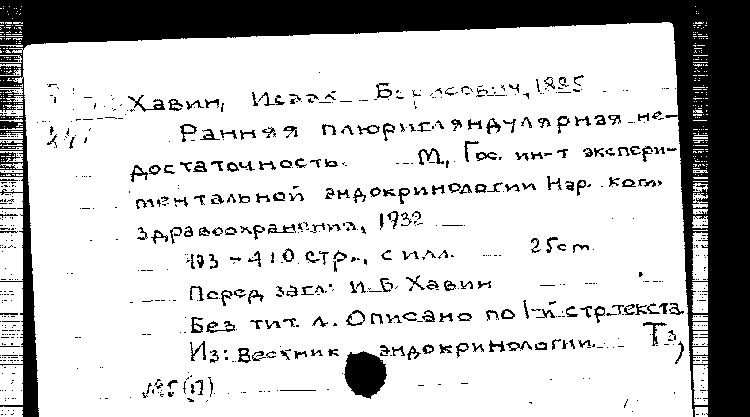 Хавин, Исаак Борисович, 1885
Ранняя плюригляндулярная не-
достаточность. М., Гос. ин-т экспери-
ментальной эндокринологии Нар. ком.
здравоохранения, 1932
403-410 стр., с илл. 25cm
Перед загл: И. Б. Хавин
Без тит. л. Описано по 1-й стр. текста.
Из: Вестник эндокринологии Т3,
№5 (17)